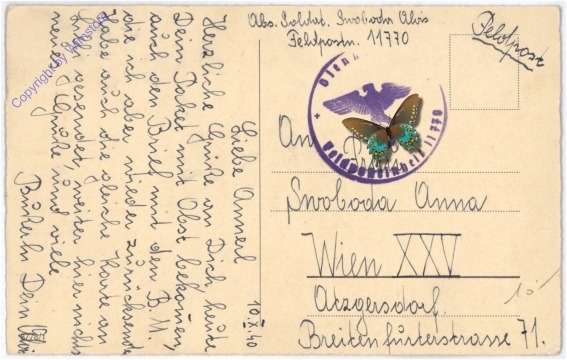 Abs. Soldat. Swoboda Alois
Feldpostn. 11770
Feldpost
Dienst
Feldposteinheit 11770
An
Swoboda Anna
Wien XXV
Atzgersdorf
Breitenfurterstrasse 71.
10
10. X. 40
Liebe Annerl
Herzliche Grüße an Dich heute
Dein Paket mit Obst bekommen,
auch den Brief mit den B.M.
die ich aber wieder zurücksende
Habe auch die gleiche Karte an
gesendet, weiter hier nichts
neues Grüße und viele
Bußerln Dein
Copyright by